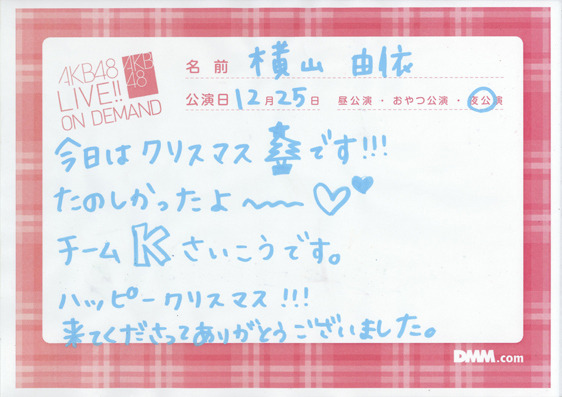 AKB48
LIVE!!
ON DEMAND
AKB
48
名前 横山 由依
公演日 12月25日 昼公演・おやつ公演・夜公演
今日はクリスマスです!!!
たのしかったよ〜〜
チームKさいこうです。
ハッピークリスマス!!!
来てくださってありがとうございました。
DMM.com